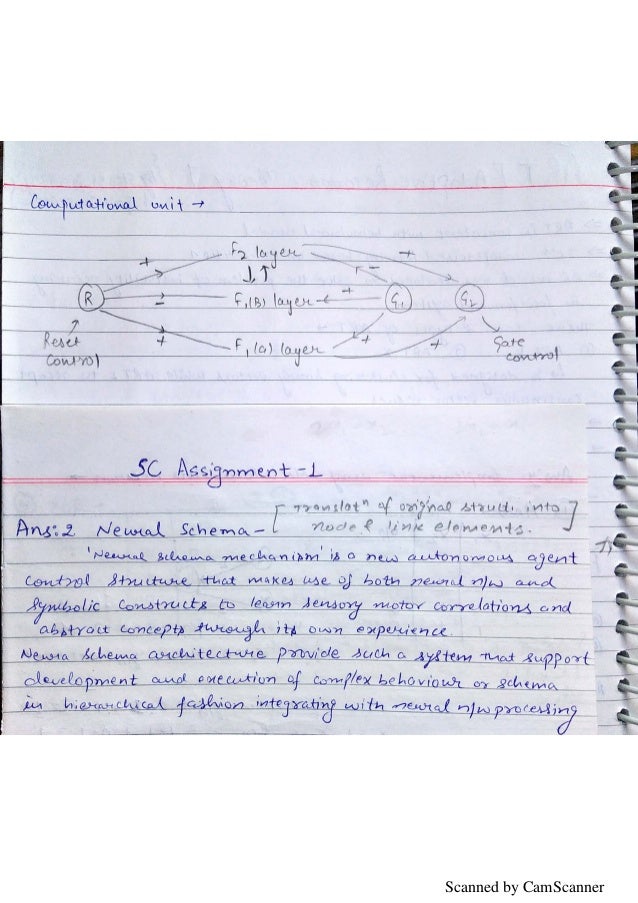 Computational unit →
F2 layer
+ + -
↓↑
R - F1(B) layer + G1 G2
Reset control + F1(a) layer + + Gate control
SC Assignment-1
[Translatn of original struct. into
Ans:2 Neural Schema - node & link elements.]
'Neural schema mechanism' is a new autonomous agent
control structure that makes use of both neural n/w and
symbolic constructs to learn sensory motor correlations and
abstract concepts through its own experience.
Neura Schema architecture provide such a system that support
development and execution of complex behaviour or schema
in hierarchical fashion integrating with neural n/w processing
Scanned by CamScanner